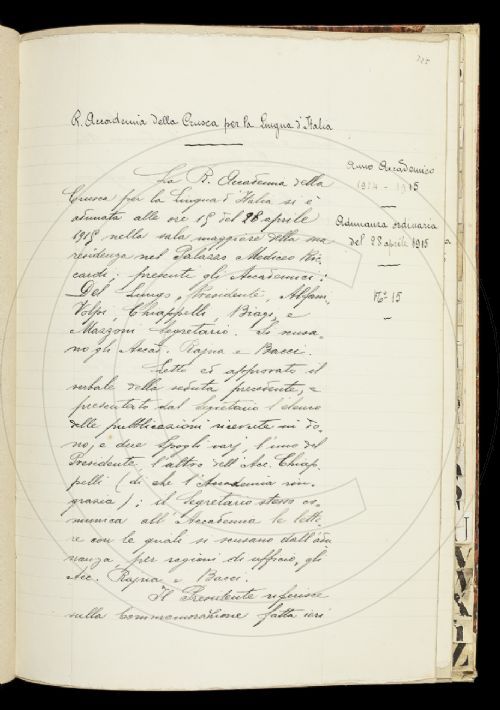 R. Accademia della Crusca per la Lingua d'Italia
Anno Accademico
1914 - 1915
Adunanza ordinaria
del 28 aprile 1915
N.º 15
La R. Accademia della
Crusca per la Lingua d'Italia si è
adunata alle ore 15 del 28 aprile
1915 nella sala maggiore della sua
residenza nel Palazzo Mediceo Ric-
cardi; presenti gli Accademici:
Del Lungo, Presidente, Alfani,
Volpi, Chiappelli, Biagi, e
Mazzoni Segretario. Si scusa-
no gli Accad. Rajna e Bacci.
Letto ed approvato il
verbale della seduta precedente, e
presentato dal Segretario l'elenco
delle pubblicazioni ricevute in do-
no, e due spogli varj, l'uno del
Presidente, l'altro dell'Acc. Chiap-
pelli (di che l'Accademia rin-
grazia); il Segretario stesso co-
munica all'Accademia le lette-
re con le quali si scusano dall'adu-
nanza per ragioni di ufficio, gli
Acc. Rajna e Bacci.
Il Presidente riferisce
sulla Commemorazione fatta ieri